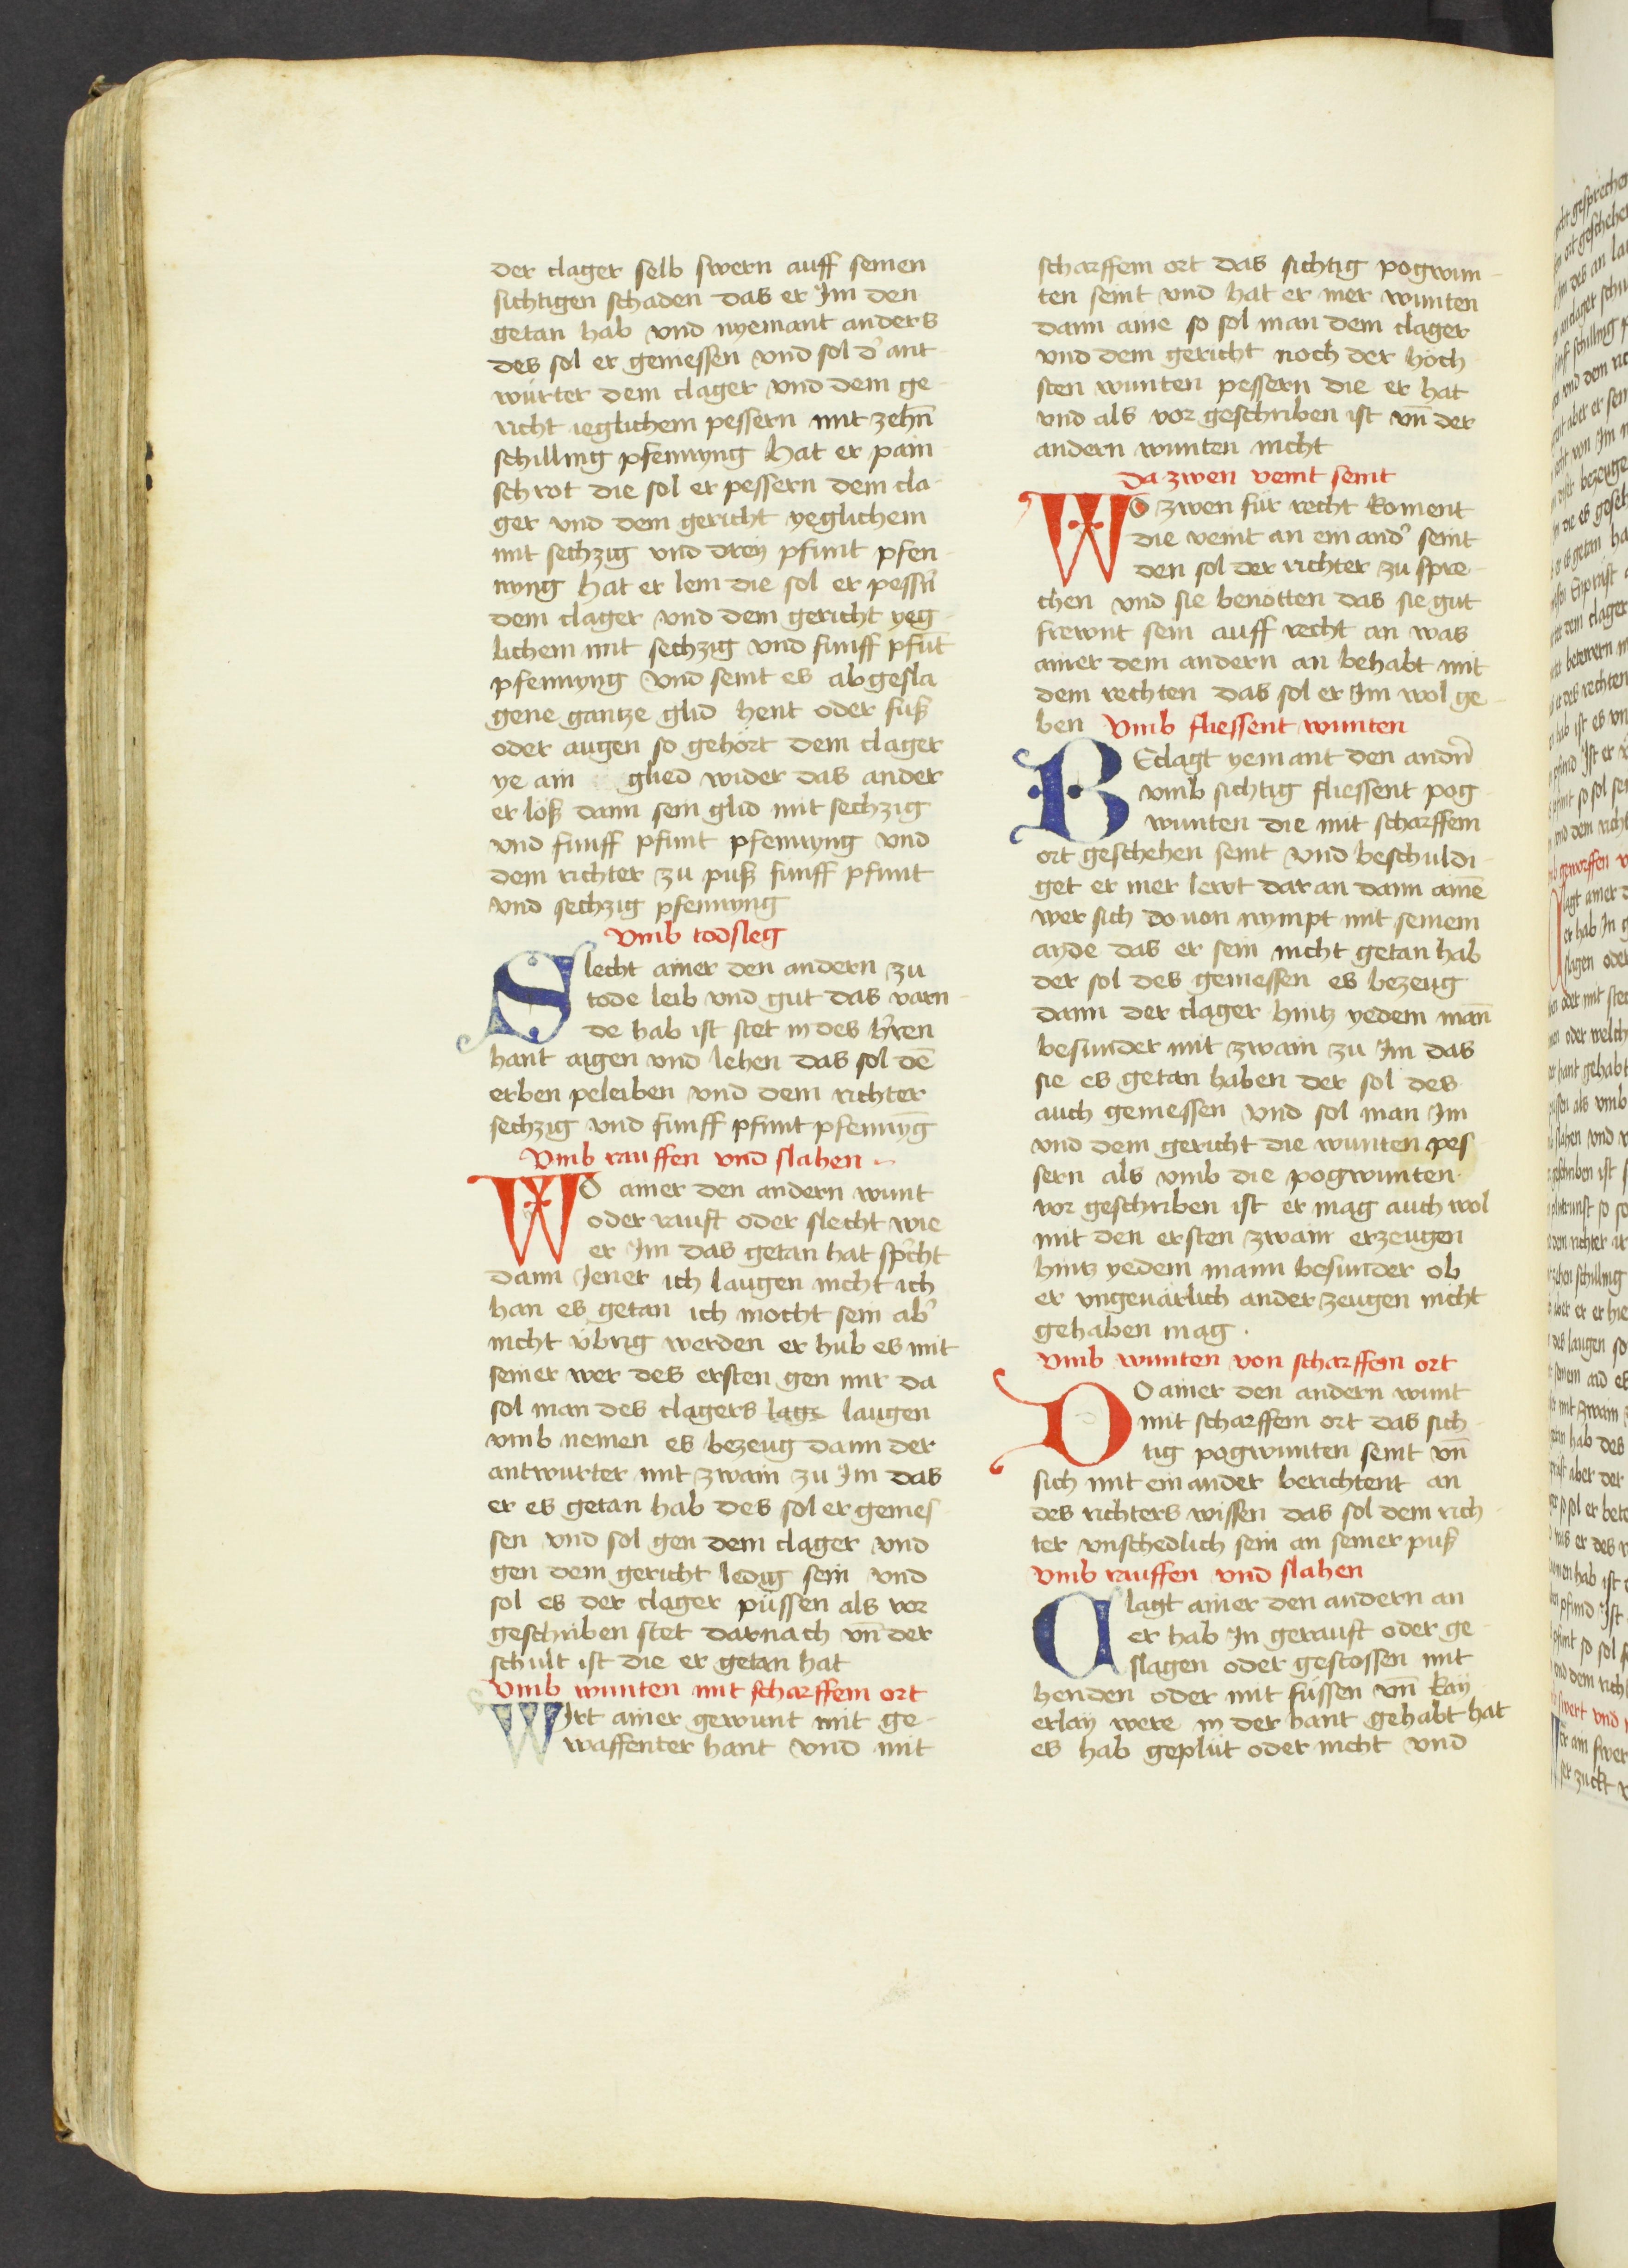 der clager selb swern auff seinen
sichtigen schaden das er Im den
getan hab vnd nyemant anders
des sol er geniessen vnd sol d' ant-
würter dem clager vnd dem ge-
richt ieglichem pessern mit zehn̄
schilling pfennyng hat er pain-
schrot die sol er pessern dem cla-
ger vnd dem gericht yeglichem
mit sechzig vnd dreÿ pfunt pfen-
nyng hat er lem die sol er pessn̄
dem clager vnd dem gericht yeg-
lichem mit sechzig vnd funff pfūt
pfennyng vnd seint es abgesla
gene gantze glid hent oder fuß
oder augen so gehört dem clager
ye ain glied wider das ander
er löß dann sein glid mit sechzig
vnd funff pfunt pfennyng vnd
dem richter zu puß funff pfunt
vnd sechzig pfennyng
Vmb todsleg
Slecht ainer den andern zu
tode leib vnd gut das varn-
de hab ist stet in des h'ren
hant aigen vnd lehen das sol dē
erben peleiben vnd dem richter
sechzig vnd funff pfunt pfennȳg
Vmb rauffen vnd slahen
WO ainer den andern wunt
oder rauft oder slecht wie
er Im das getan hat sp'cht
dann Jener ich laugen nicht ich
han es getan ich mocht sein ab'
nicht übrig werden er hub es mit
seiner wer des ersten gen mir da
sol man des clagers lage laugen
vmb nemen es bezeug dann der
antwurter mit zwain zu Im das
er es getan hab des sol er genies-
sen vnd sol gen dem clager vnd
gen dem gericht ledig sein vnd
sol es der clager püssen als vor
geschriben stet darnach vn̄ der
schult ist die er getan hat
Vmb wunten mit scharffem ort
WIrt ainer gewunt mit ge-
waffenter hant vnd mit
scharffem ort das sichtig pogwun-
ten seint vnd hat er mer wunten
dann aine so sol man dem clager
vnd dem gericht noch der höch-
sten wunten pessern die er hat
vnd als vor geschriben ist vn̄ der
andern wunten nicht
Da zwen veint seint
WO zwen für recht koment
die veint an ein and' seint
den sol der richter zu spre-
chen vnd sie benötten das sie gut
frewnt sein auff recht an was
ainer dem andern an behabt mit
dem rechten das sol er Im wol ge-
ben Vmb fliessent wunten
BEclagt yemant den andn̄
vmb sichtig fliessent pog-
wunten die mit scharffem
ort geschehen seint vnd beschuldi-
get er mer lewt dar an dann ainē
wer sich do uon nympt mit seinem
ayde das er sein nicht getan hab
der sol des geniessen es bezeug
dann der clager hintz yedem man̄
besunder mit zwain zu Im das
sie es getan haben der sol des
auch geniessen vnd sol man Im
vnd dem gericht die wunten pes-
sern als vmb die pogwunten
vor geschriben ist er mag auch wol
mit den ersten zwain erzeugen
hintz yedem mann besunder ob
er vngeuärlich ander zeugen nicht
gehaben mag.
Vmb wunten von scharffem ort
DO ainer den andern wunt
mit scharffem ort das sich-
tig pogwunten seint vn̄
sich mit ein ander berichtent an
des richters wissen das sol dem rich-
ter vnschedlich sein an seiner puß
Vmb rauffen vnd slahen
Clagt ainer den andern an
er hab In gerauft oder ge-
slagen oder gestossen mit
henden oder mit füssen vn̄ kaÿ
erlaÿ were in der hant gehabt hat
es hab geplüt oder nicht vnd